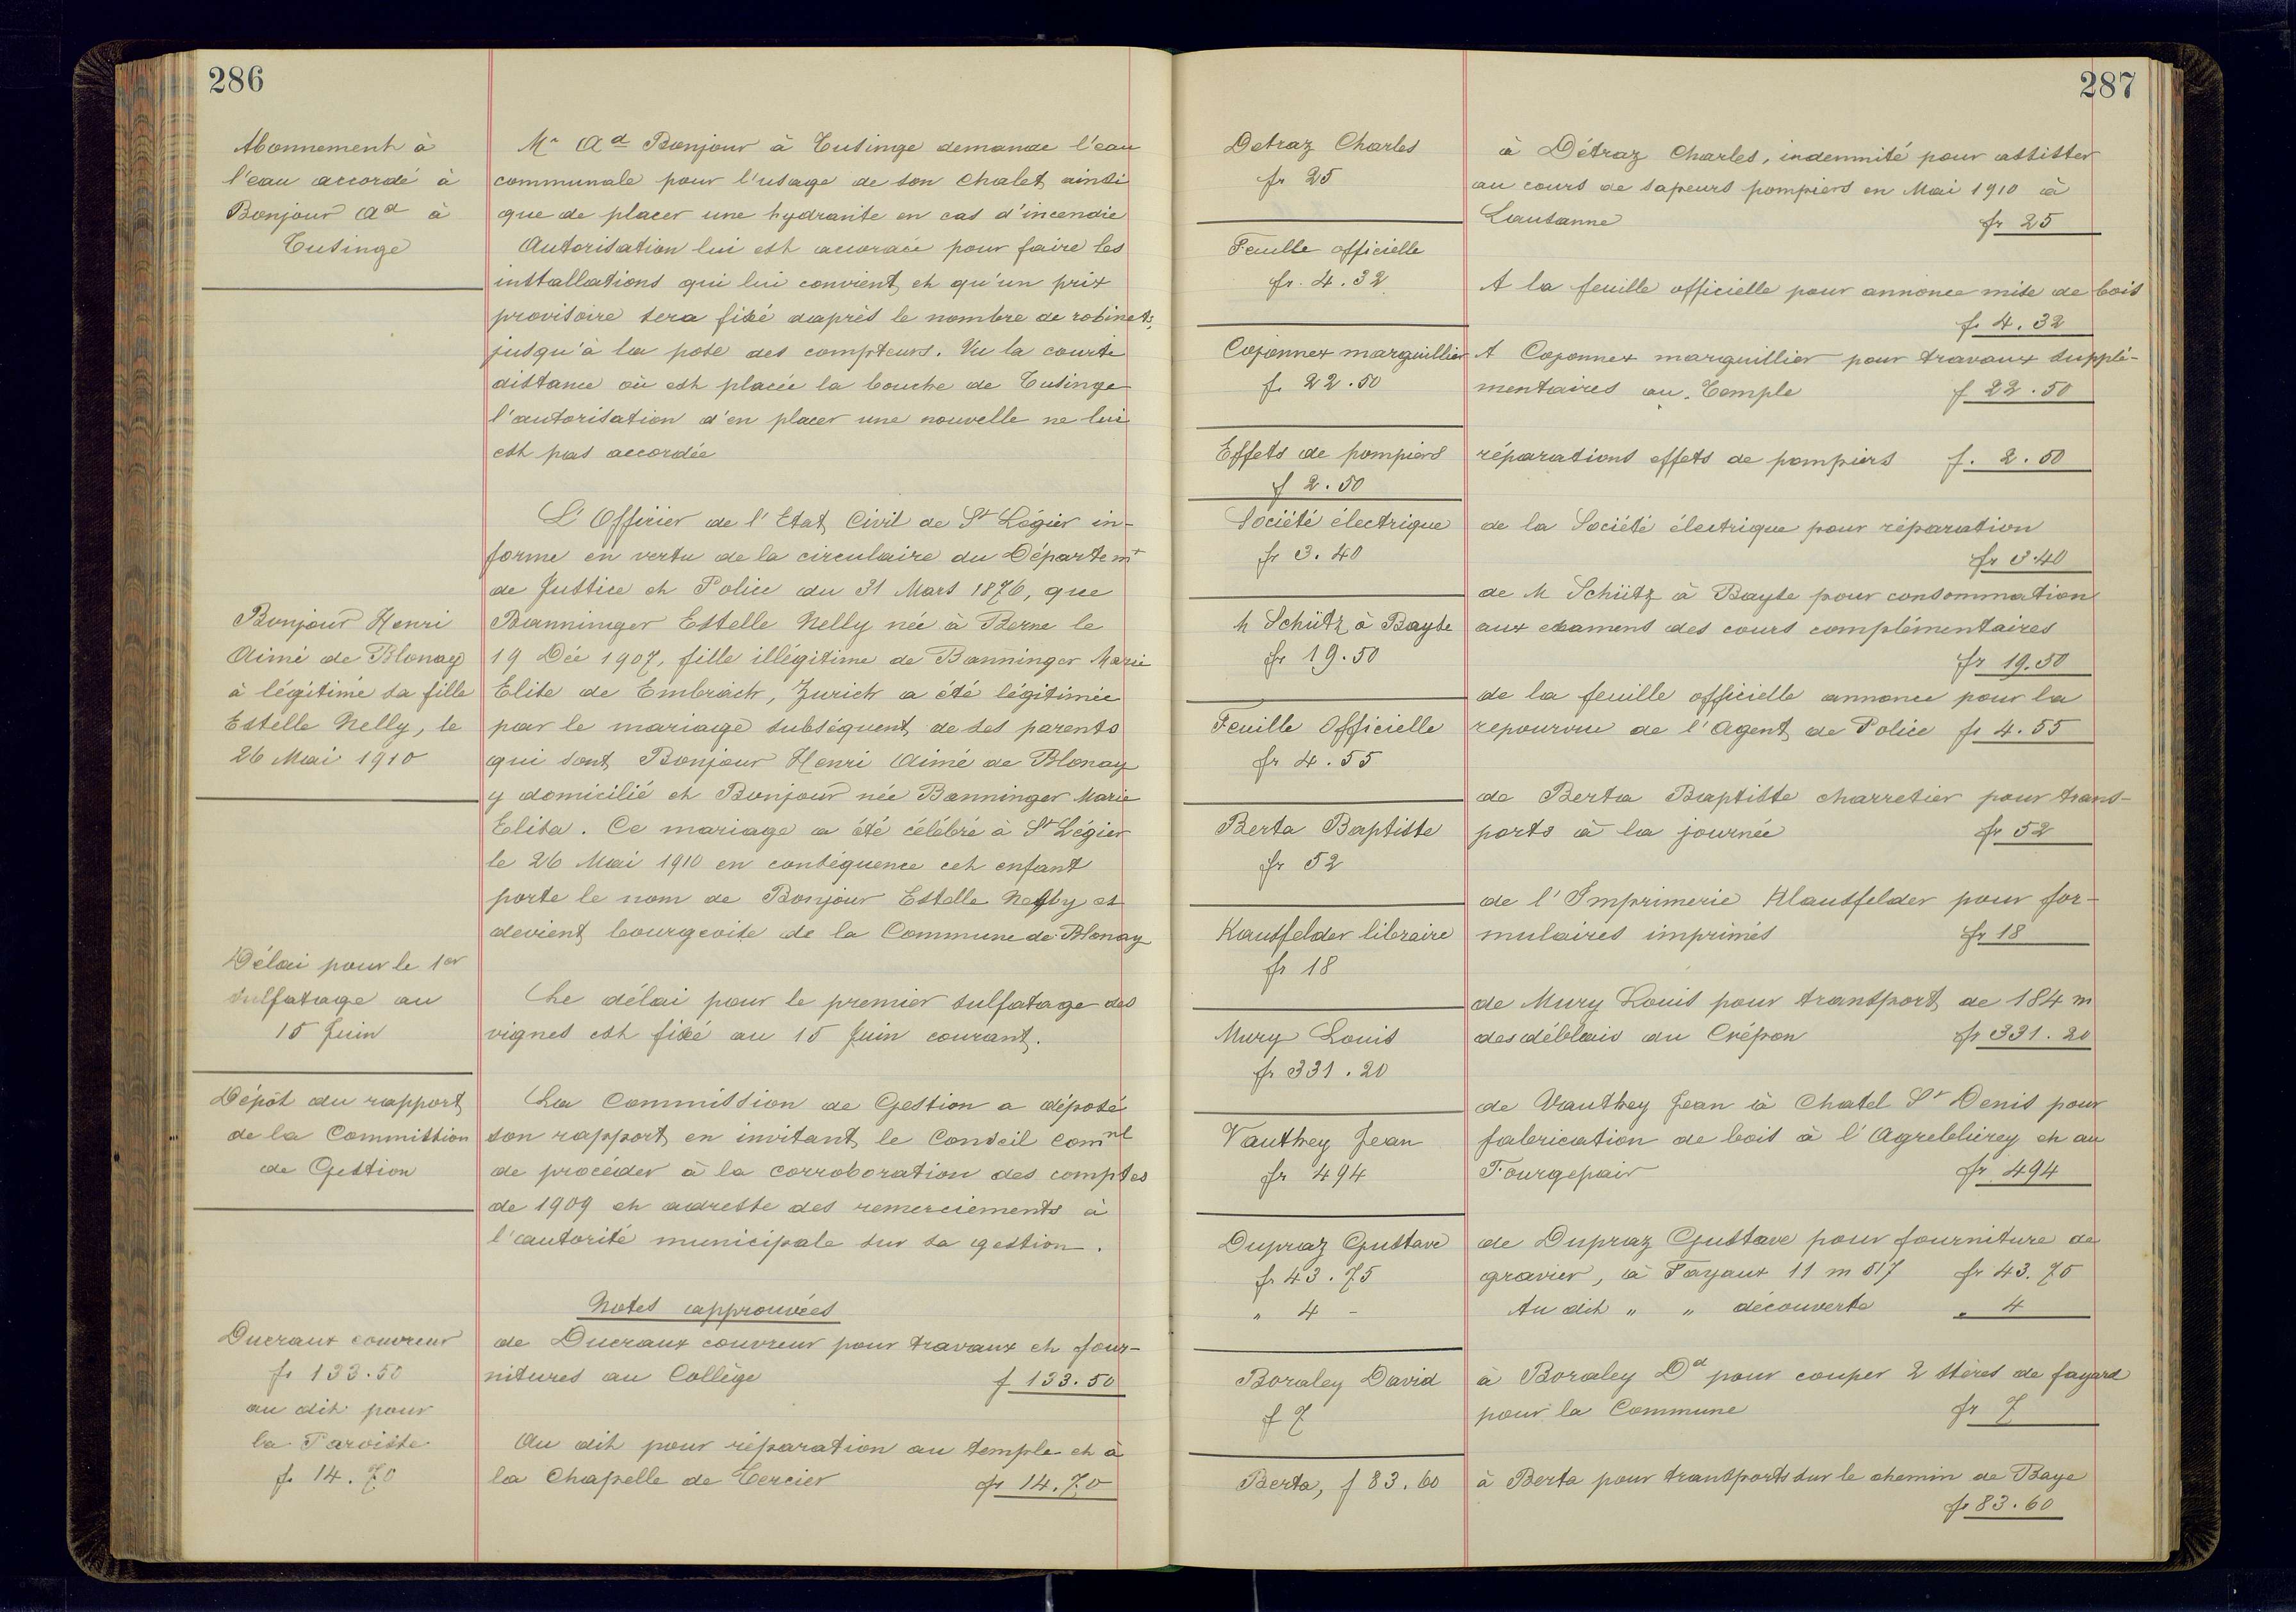 286
Abonnement à
l'eau accordé à
Bonjour Ad à
Tusinge
Mr Ad Bonjour à Tusinge demande l'eau
communale pour l'usage de son chalet ainsi
que de placer une hydrante en cas d'incendie
Autorisation lui est accordée pour faire les
installations qui lui convient et qu'un prix
provisoire sera fixé d'après le nombre de robinets,
jusqu'à la pose des compteurs. Vu la courte
distance où est placée la bouche de Tusinge
l'autorisation d'en placer une nouvelle ne lui
est pas accordée
L'Officier de l'Etat Civil de St Légier in-
forme en vertu de la circulaire du Départemt
de Justice et Police du 31 Mars 1876, que
Bonjour Henri
Aimé de Blonay
à légitimé sa fille
Estelle Nelly, le
26 Mai 1910
Banninger Estelle Nelly née à Berne le
19 Déc 1907, fille illégitime de Banninger Marie
Elise de Embrach, Zurich a été légitimée
par le mariage subséquent de ses parents
qui sont Bonjour Henri Aimé de Blonay
y domicilié et Bonjour née Banninger Marie
Elisa. Ce mariage a été célébré à St Légier
le 26 Mai 1910 en conséquence cet enfant
porte le nom de Bonjour Estelle Nelly et
devient bourgeoise de la Commune de Blonay
Délai pour le 1er
sulfatage au
15 Juin
Le délai pour le premier sulfatage des
vignes est fixé au 15 Juin courant.
Dépôt du rapport
de la Commission
de Gestion
La Commission de Gestion a déposé
son rapport en invitant le Conseil comnl
de procéder à la corroboration des comptes
de 1909 et adresse des remerciements à
l'autorité municipale sur sa gestion.
Notes approuvées
Ducraux couvreur
fr 133.50
au dit pour
la Paroisse
fr 14.70
de Ducraux couvreur pour travaux et four-
nitures au Collège f 133.50
Au dit pour réparation au temple et à
la Chapelle de Tercier fr 14.70
287
Detraz Charles
fr 25
à Détraz Charles, indemnité pour assister
au cours de sapeurs pompiers en Mai 1910 à
Lausanne fr 25
Feuille officielle
fr. 4.32
A la feuille officielle pour annonce mise de bois
fr 4.32
Cojonnex marguillier
f. 22.50
A Cojonnex marguillier pour travaux supplé-
mentaires au Temple f 22.50
Effets de pompiers
f 2.50
réparations effets de pompiers f. 2.50
Société électrique
fr 3.40
de la Société électrique pour réparation
fr 3.40
M Schütz à Bayse
fr 19.50
de M Schütz à Bayse pour consommation
aux examens des cours complémentaires
fr 19.50
Feuille Officielle
fr 4.55
de la feuille officielle annonce pour la
repourvue de l'Agent de Police fr 4.55
Berta Baptiste
fr 52
de Berta Baptiste charretier pour trans-
ports à la journée fr 52
Kausfelder libraire
fr 18
de l'Imprimerie Klausfelder pour for-
mulaires imprimés fr 18
Mury Louis
fr 331.20
de Mury Louis pour transport de 184 m
des déblais du Crépon fr 331.20
Vauthey Jean
fr 494
de Vauthey Jean à Chatel St Denis pour
fabrication de bois à l'Agreblierey et au
Fourgepair fr 494
Dupraz Gustave
fr 43.75
" 4 -
de Dupraz Gustave pour fourniture de
gravier, à Fayaux 11 m 517 fr 43.75
Au dit " " découverte " 4
Boraley David
f 7
à Boraley Dd pour couper 2 stères de fayard
pour la Commune fr 7
Berta, f 83.60
à Berta pour transports sur le chemin de Baye
fr 83.60